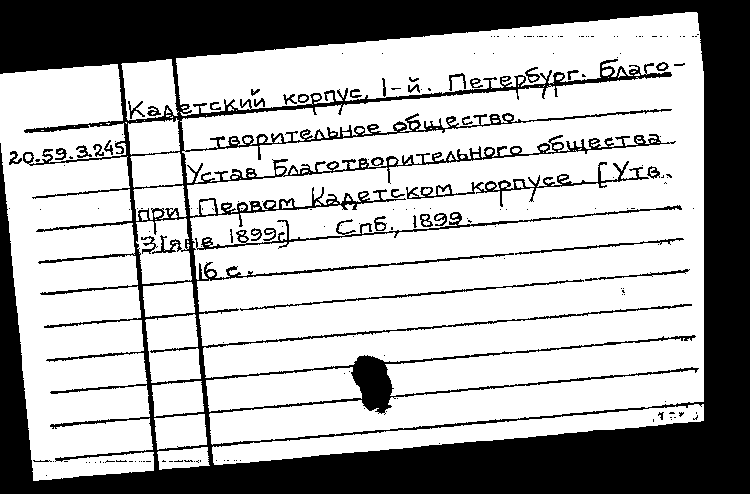 Кадетский корпус, 1-й. Петербург. Благо-
творительное общество.
20.59.3.245
Устав Благотворительного общества
при Первом Кадетском корпусе. [Утв.
31 янв. 1899г.] Спб., 1899.
16 с.